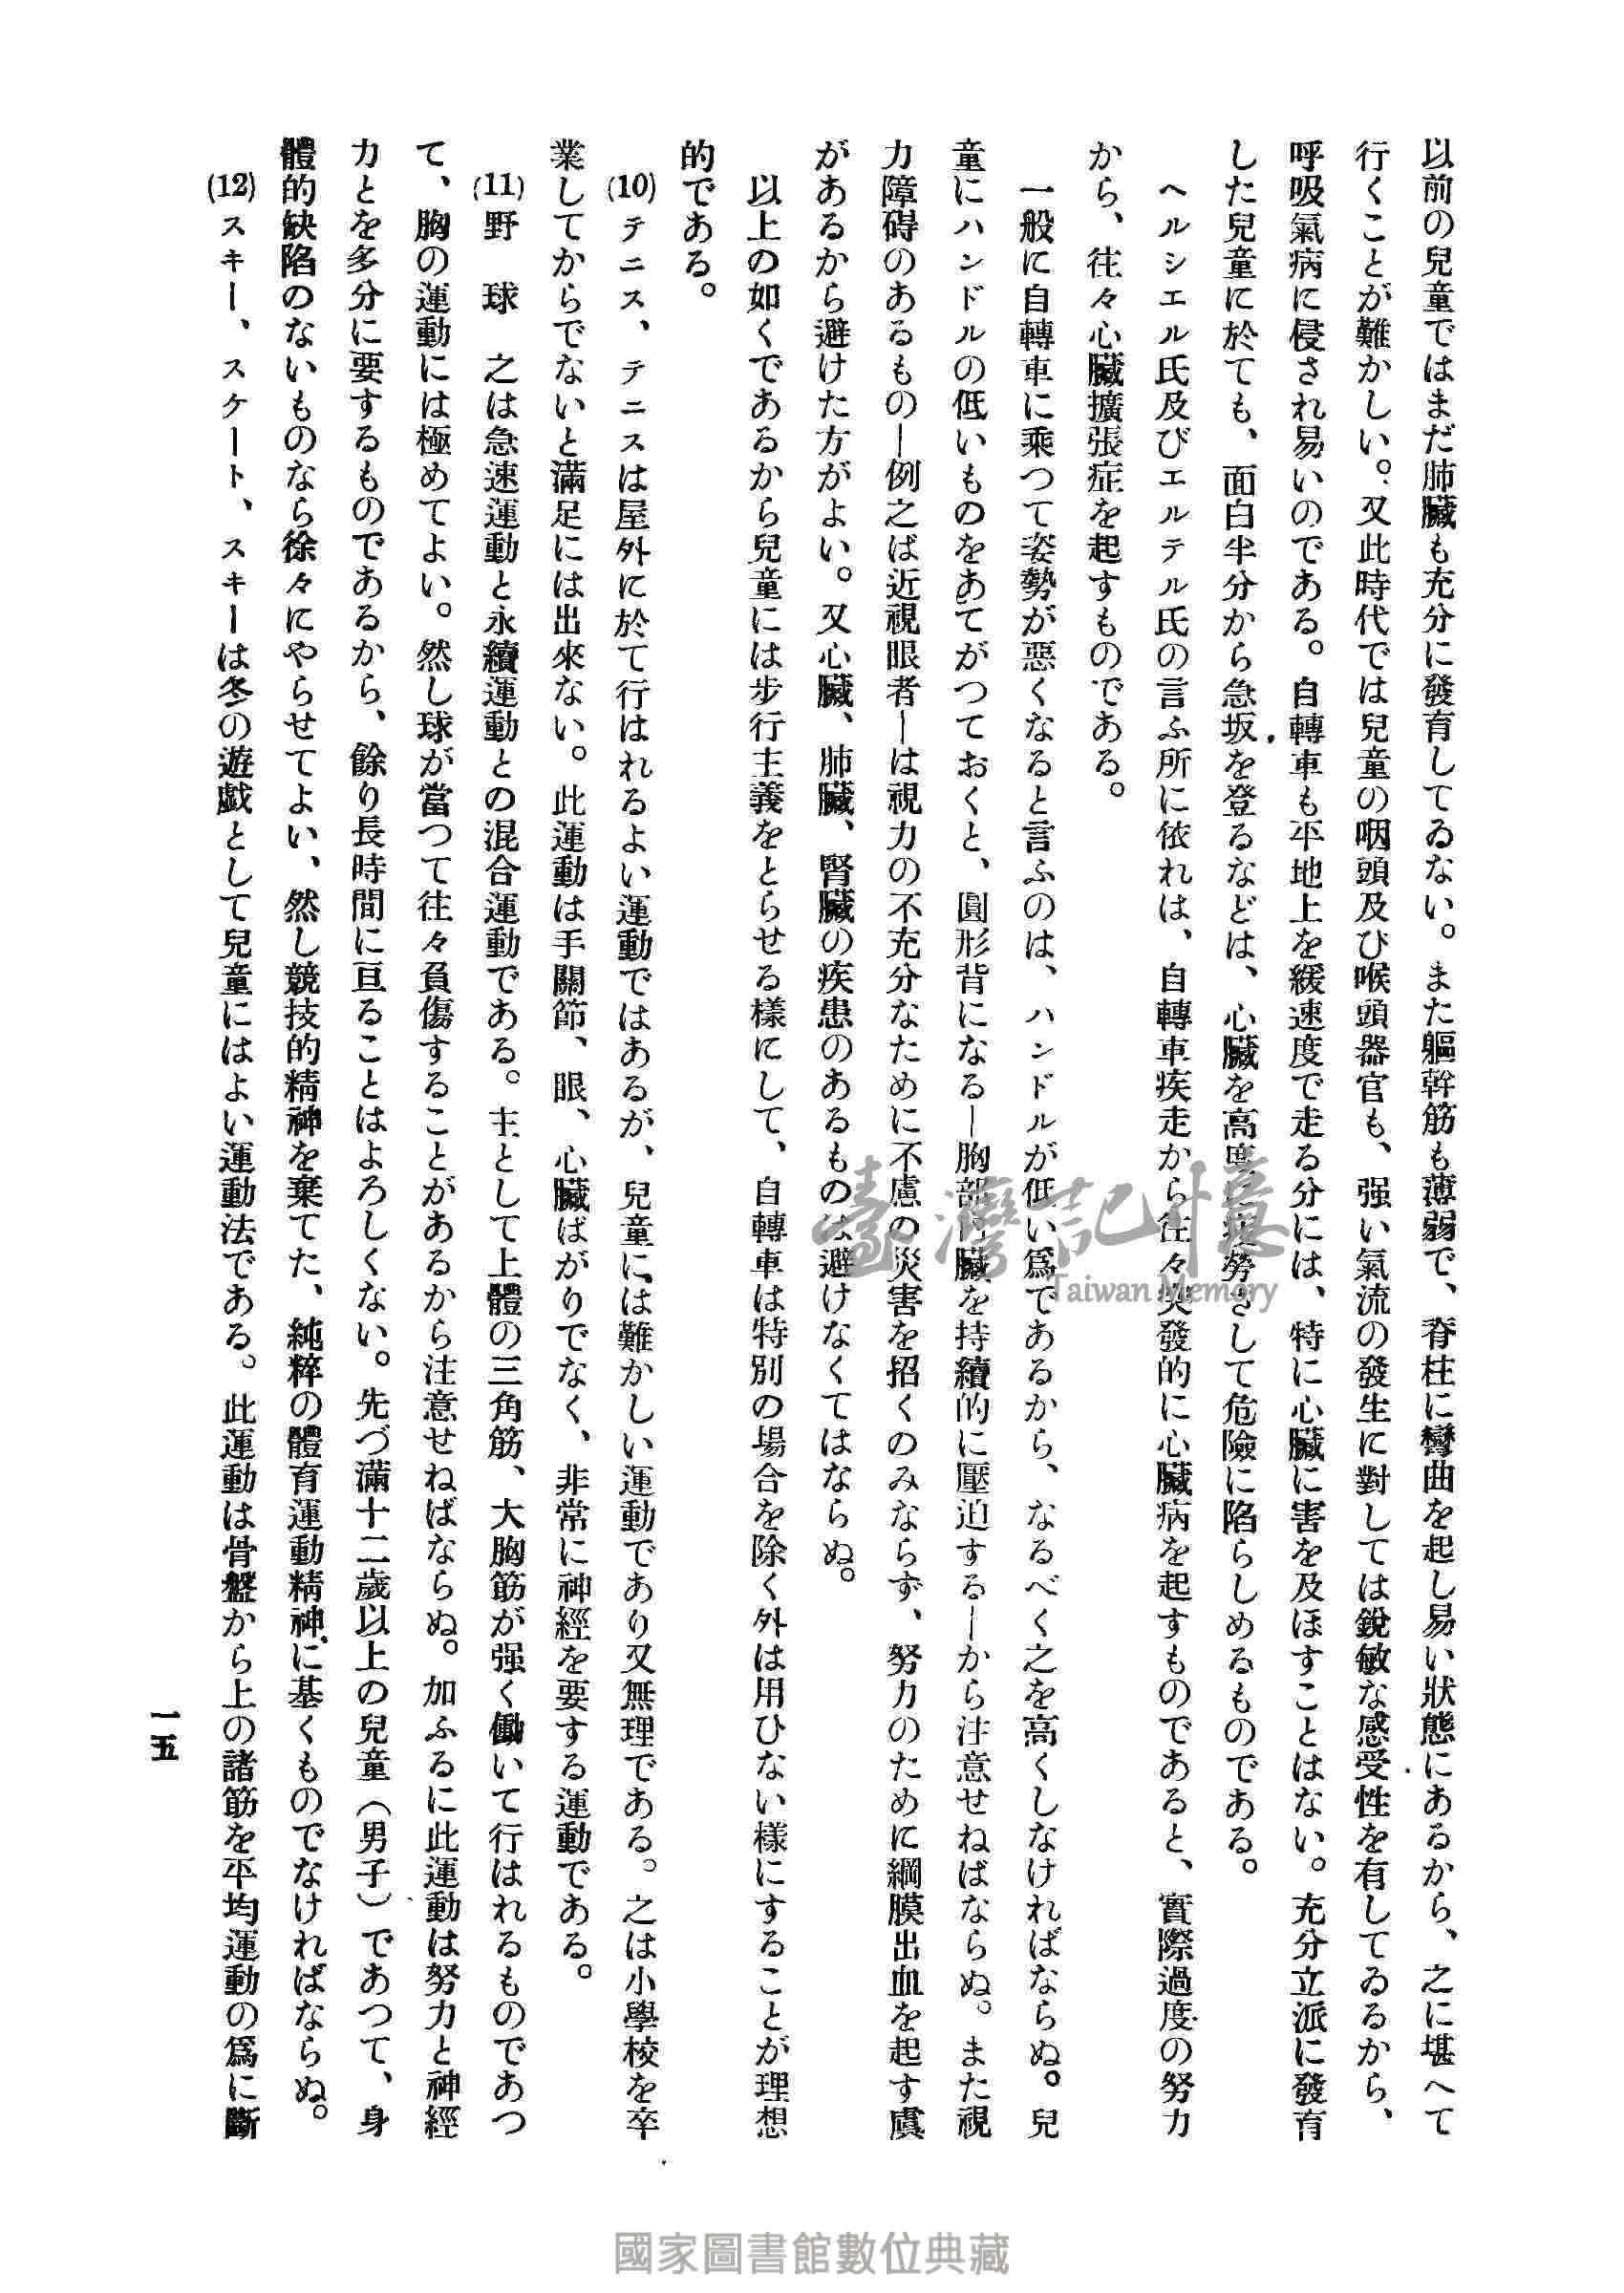 以前の兒童ではまだ肺臟も充分に發育してゐない。また軀幹筋も薄弱で、脊柱に彎曲を起し易い狀態にあるから、之に堪へて
行くことが難かしい。又此時代では兒童の咽頭及び喉頭器官も、强い氣流の發生に對しては銳敏な感受性を有してゐるから、
呼吸氣病に侵され易いのである。自轉車も平地上を緩速度で走る分には、特に心臟に害を及ほすことはない。充分立派に發育
した兒童に於ても、面白半分から急坂を登るなどは、心臟を高度に疲勞さして危險に陷らしめるものである。
ヘルシエル氏及びエルテル氏の言ふ所に依れは、自轉車疾走から往々突發的に心臟病を起すものであると、實際過度の努力
から、往々心臟擴張症を起すものである。
一般に自轉車に乘つて姿勢が惡くなると言ふのは、ハンドルが低い爲であるから、なるべく之を高くしなければならぬ。兒
童にハンドルの低いものをあてがつておくと、圓形背になる―胸部內臟を持續的に壓迫する―から注意せねばならぬ。また視
力障碍のあるもの―例之ば近視眼者―は視力の不充分なために不慮の災害を招くのみならず、努力のために綱膜出血を起す虞
があるから避けた方がよい。又心臟、肺臟、腎臟の疾患のあるものは避けなくてはならぬ。
以上の如くであるから兒童には步行主義をとらせる樣にして、自轉車は特別の場合を除く外は用ひない樣にすることが理想
的である。
(10)テニス、テニスは屋外に於て行はれるよい運動ではあるが、兒童には難かしい運動であり又無理である。之は小學校を卒
業してからでないと滿足には出來ない。此運動は手關節、眼、心臟ばがりでなく、非常に神經を要する運動である。
(11)野　球　之は急速運動と永續運動との混合運動である。主として上體の三角筋、大胸筋が强く働いて行はれるものであつ
て、胸の運動には極めてよい。然し球が當つて往々負傷することがあるから注意せねばならぬ。加ふるに此運動は努力と神經
力とを多分に要するものであるから、餘り長時間に亘ることはよろしくない。先づ滿十二歲以上の兒童（男子）であつて、身
體的缺陷のないものなら徐々にやらせてよい、然し競技的精神を棄てた、純粹の體育運動精神に基くものでなければならぬ。
(12)スキー、スケート、スキーは冬の遊戲として兒童にはよい運動法である。此運動は骨盤から上の諸筋を平均運動の爲に斷
一五
臺灣記憶
Taiwan Memory
國家圖書館數位典藏